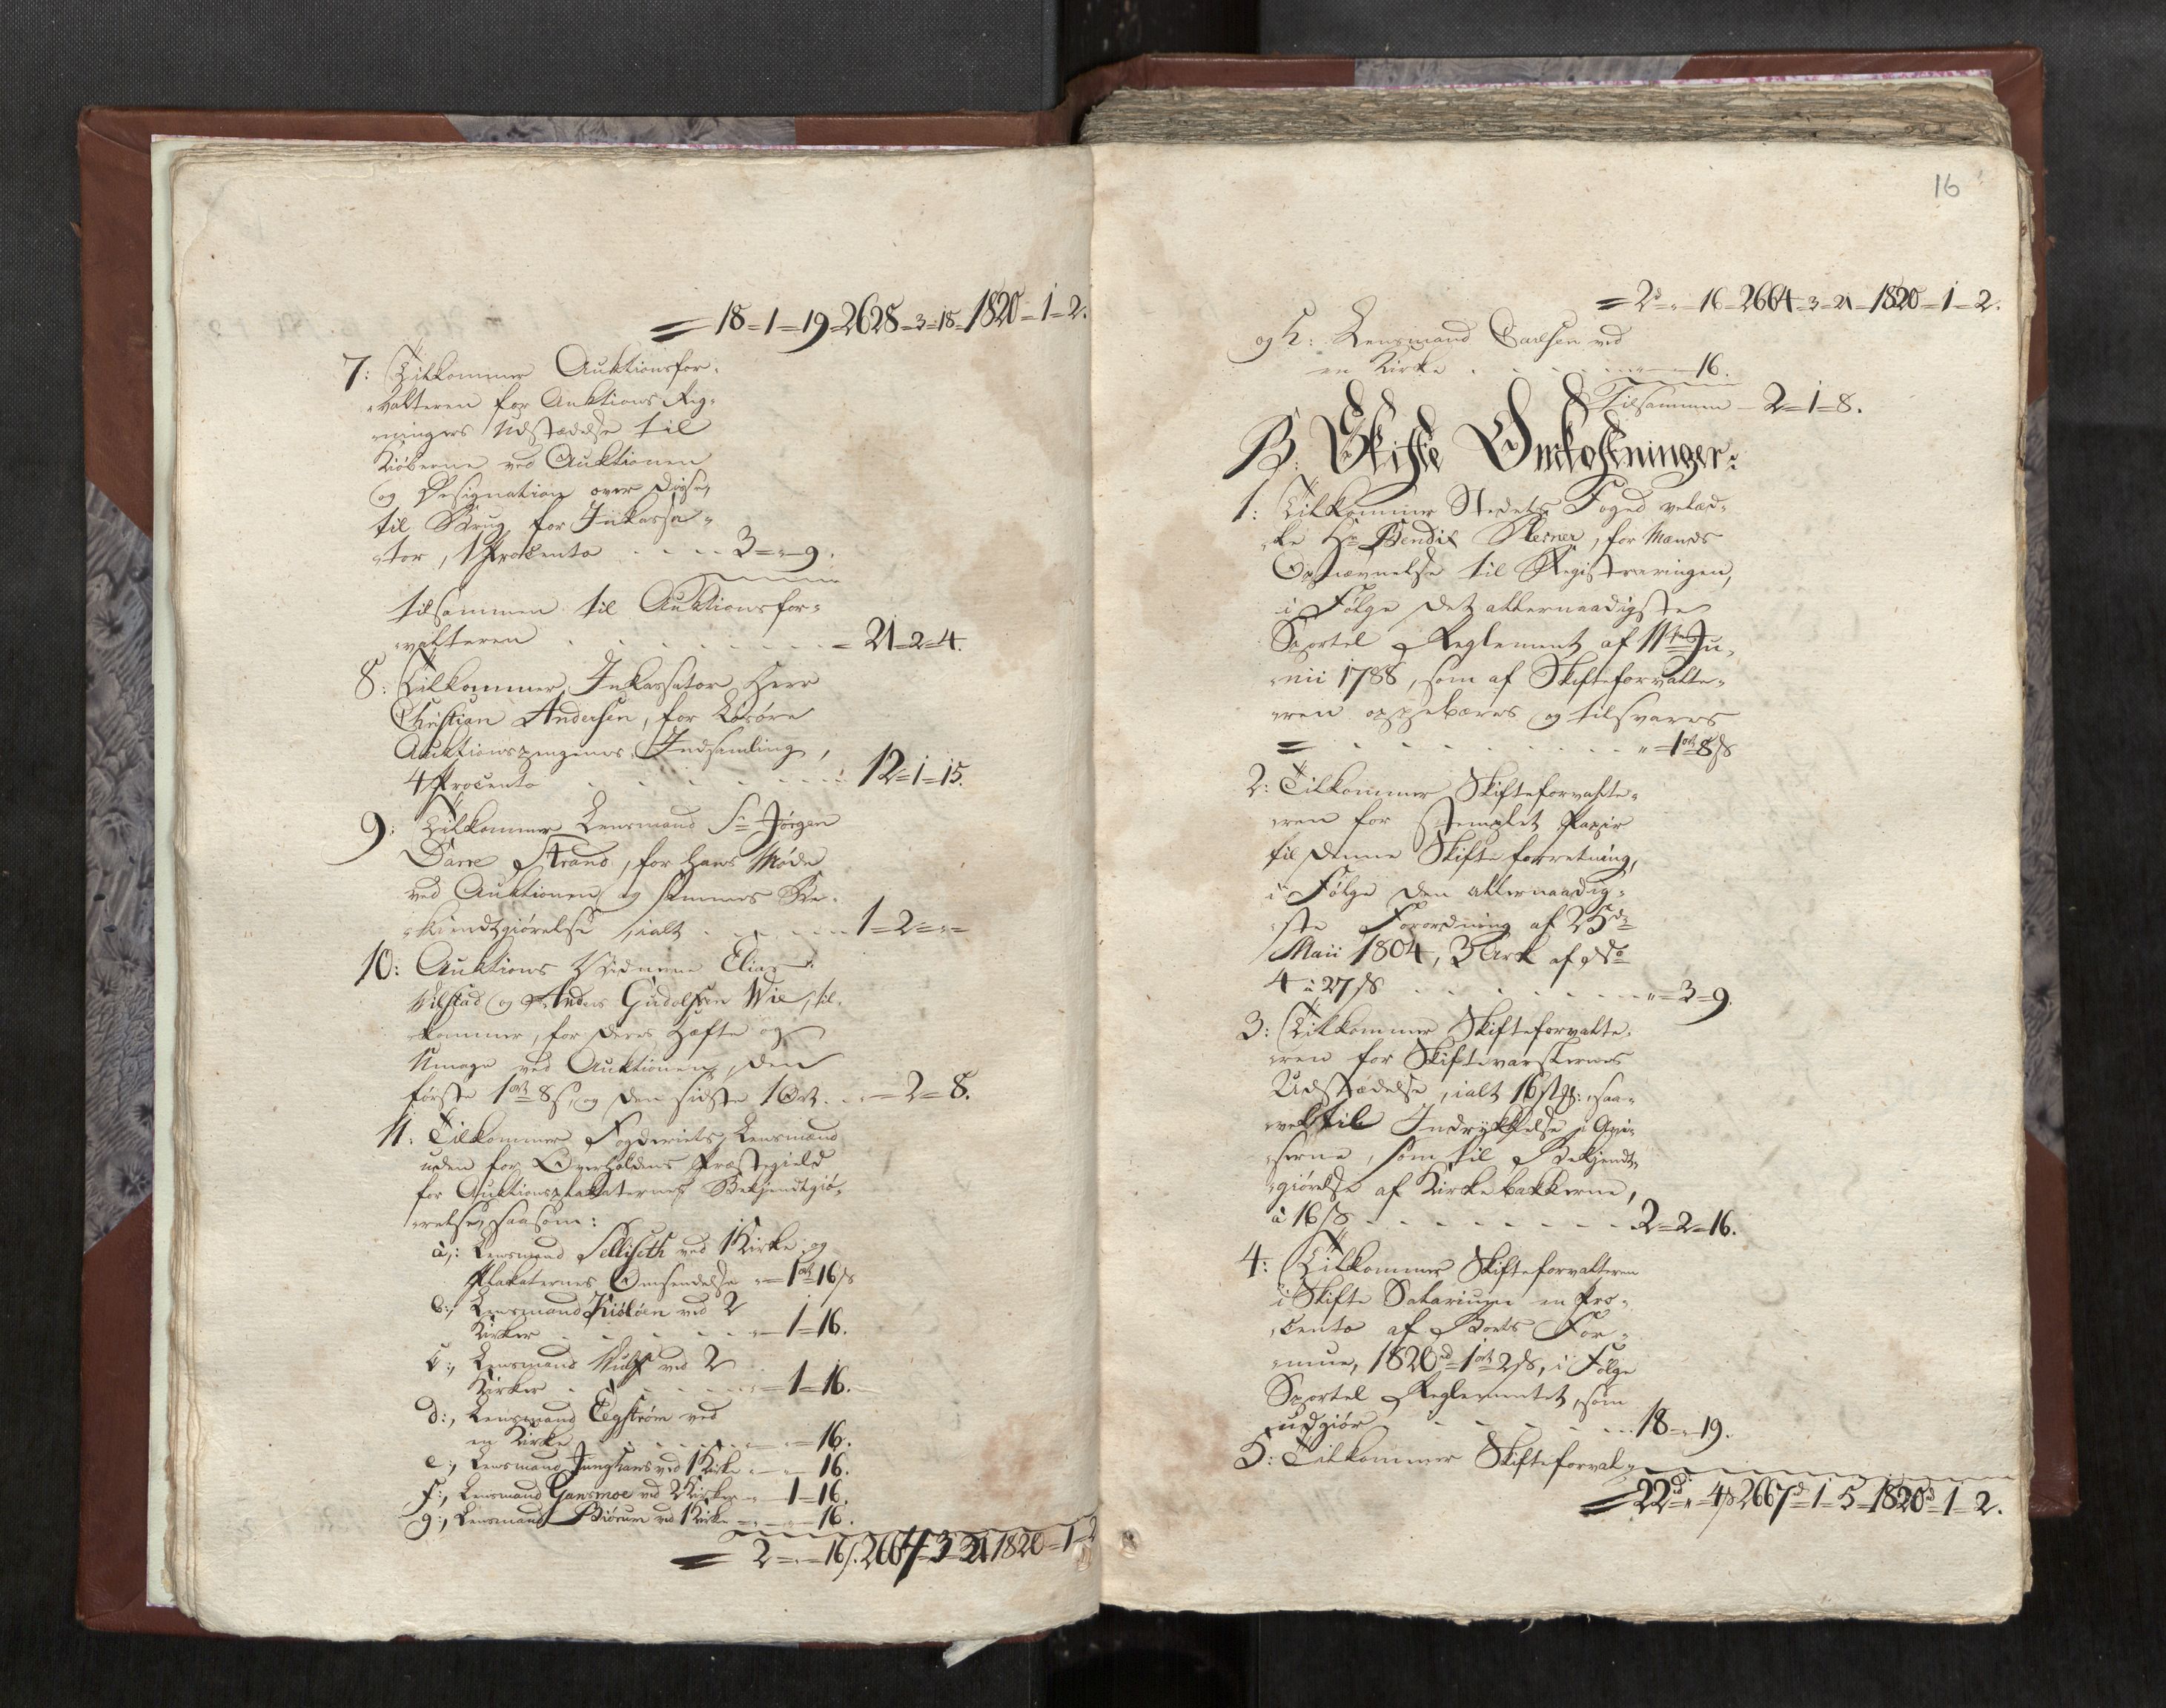 = 18 = 1 = 19 = 2628 = 3 = 18 = 1820 = 1 = 2.
7: Tilkommer Auktionsfor-
valteren for Auktions Reg-
ningers Udstædelse til
Kiøberne ved Auktionen
og Designation over disse,
til Brug for Inkassa-
tor, 1 Procento . . . . 3 = „ = 9.
tilsammen til Auktionsfor-
valteren . . . . . . = 21 = 2 = 4.
8: Tilkommer Inkassator Herr
Christian Andersen, for Løsøre
Auktionspengenes Indsamling,
4 Procento . . . . . . 12 = 1 = 15.
9: Tilkommer Lensmand Sr Jørgen
Darre Strand, for hans Møde
ved Auktionen og sammes Be-
kiendtgiørelse, ialt . . . . 1 = 2 = „ =
10: Auktions Vidnerne Elias
Vilstad og Anders Gudolfsen Wie, til-
kommer, for deres Hæfte og
Umage ved Auktionen, den
første 1 ort 8 s, og den sidste 1 Ort . . = 2 = 8.
11: Tilkommer Fogderiets Lensmænd
uden for Overhaldens Præstegield
for Auktionsplakaternes Bekjendtgiø-
relse, saasom:
a,: Lensmand Selliseth ved 1 Kirke og
Plakaternes Omsendelse „ = 1 ort 16 s
b:, Lensmand Kiøløen ved 2
Kirker . . . . . „ = 1 = 16.
c:, Lensmand Wulf ved 2
Kirker . . . . . „ = 1 = 16.
d:, Lensmand Tegstrøm ved
en Kirke . . . . „ = „ = 16.
e:, Lensmand Junghans ved 1 Kirke „ = „ = 16.
f:, Lensmand Gansmoe ved 2 Kirker „ = 1 = 16.
g:, Lensmand Biørum ved 1 Kirke „ = „ = 16.
= 2 = „ = 16 s. 2664 = 3 = 21 1820 = 1 = 2
16
= 2 d „ = 16 = 2664 = 3 = 21 = 1820 = 1 = 2.
og h: Lensmand Carlsen ved
en Kirke . . . . . „ = 16.
Tilsammen = 2 = 1 = 8.
B: Skifte Omkostninger:
1: Tilkommer Stedets Foged velæd-
le Hr Bendix Pleiner, for Mænds
Opnævnelse til Registreringen,
i Følge det allernaadigste
Sportel Reglement af 11te Ju-
nii 1788, som af Skifteforvalte-
ren oppebæres og tilsvares
= . . . . . . . „ = 1 ort 8 s
2: Tilkommer Skifteforvalte-
ren for stemplet Papir
til denne Skifteforretning,
i Følge den allernaadig-
ste Forordning af 25de
Maii 1804, 3 Ark af No
4 à 27 s . . . . . . „ = 3 = 9.
3: Tilkommer Skifteforvalte-
ren for Skiftevarslernes
Udstædelse, ialt 16 Stk:, saa-
vel til Indrykkelse i Avi-
serne, som til Bekjendt-
giørelse af Kirkebakkerne,
à 16 s . . . . . . . 2 = 2 = 16.
4: Tilkommer Skifteforvalteren
i Skifte Salarium en Pro-
cento af Boets For-
mue, 1820 d = 1 ort 2 s, i Følge
Sportel Reglementet, som
udgiør . . . . . . 18 = „ = 19.
5: Tilkommer Skifteforval-
= 22 d „ = 4 s 2667 d = 1 = 5 = 1820 d = 1 = 2.